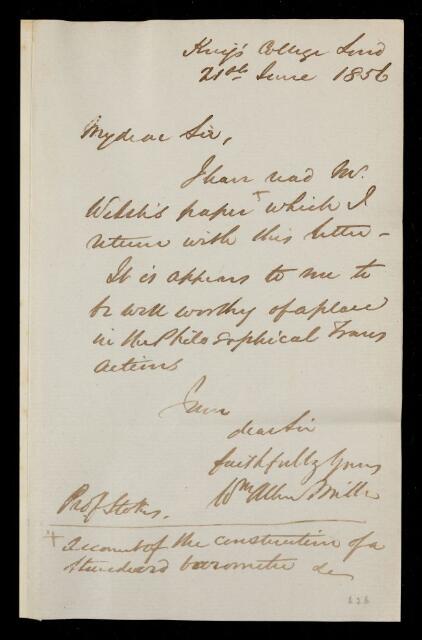 King's College Lond
21st June 1856
My dear Sir,
I have read Mr.
Welsh's paper + which I
return with this letter –
It is appears to me to
be well worthy of a place
in the Philosophical Trans
actions
I am
dear Sir
faithfully Yours
Wm Allen Miller
Prof Stokes.
+ account of the construction of a
standard barometer &c